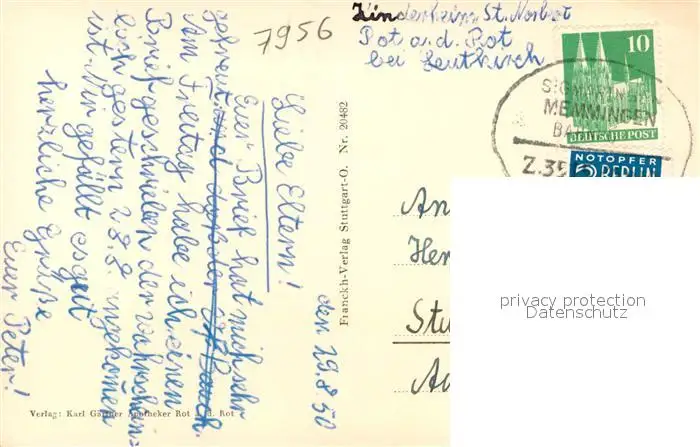 Kinderheim St. Norbert
Rot a. d. Rot
bei Leutkirch
7956
10
DEUTSCHE POST
NOTOPFER
2 BERLIN
MEMMINGEN
Z.35
den 29.8.50
Liebe Eltern!
Euer Brief hat mich sehr
gefreut. und daß der auch.
Am Freitag habe ich einen
Brief geschrieben der wahrschein=
lich gestern 28.8. angekomen
ist. Mir gefällt es gut
herzliche Grüße
Euer Peter!
Franckh-Verlag Stuttgart-O. Nr. 20482
Verlag: Karl Gärtner Apotheker Rot a. d. Rot
An
Her
Stu
privacy protection
Datenschutz